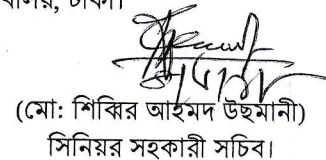 ঢাকা।
(মো: শিব্বির আহমদ উছমানী)
সিনিয়র সহকারী সচিব।